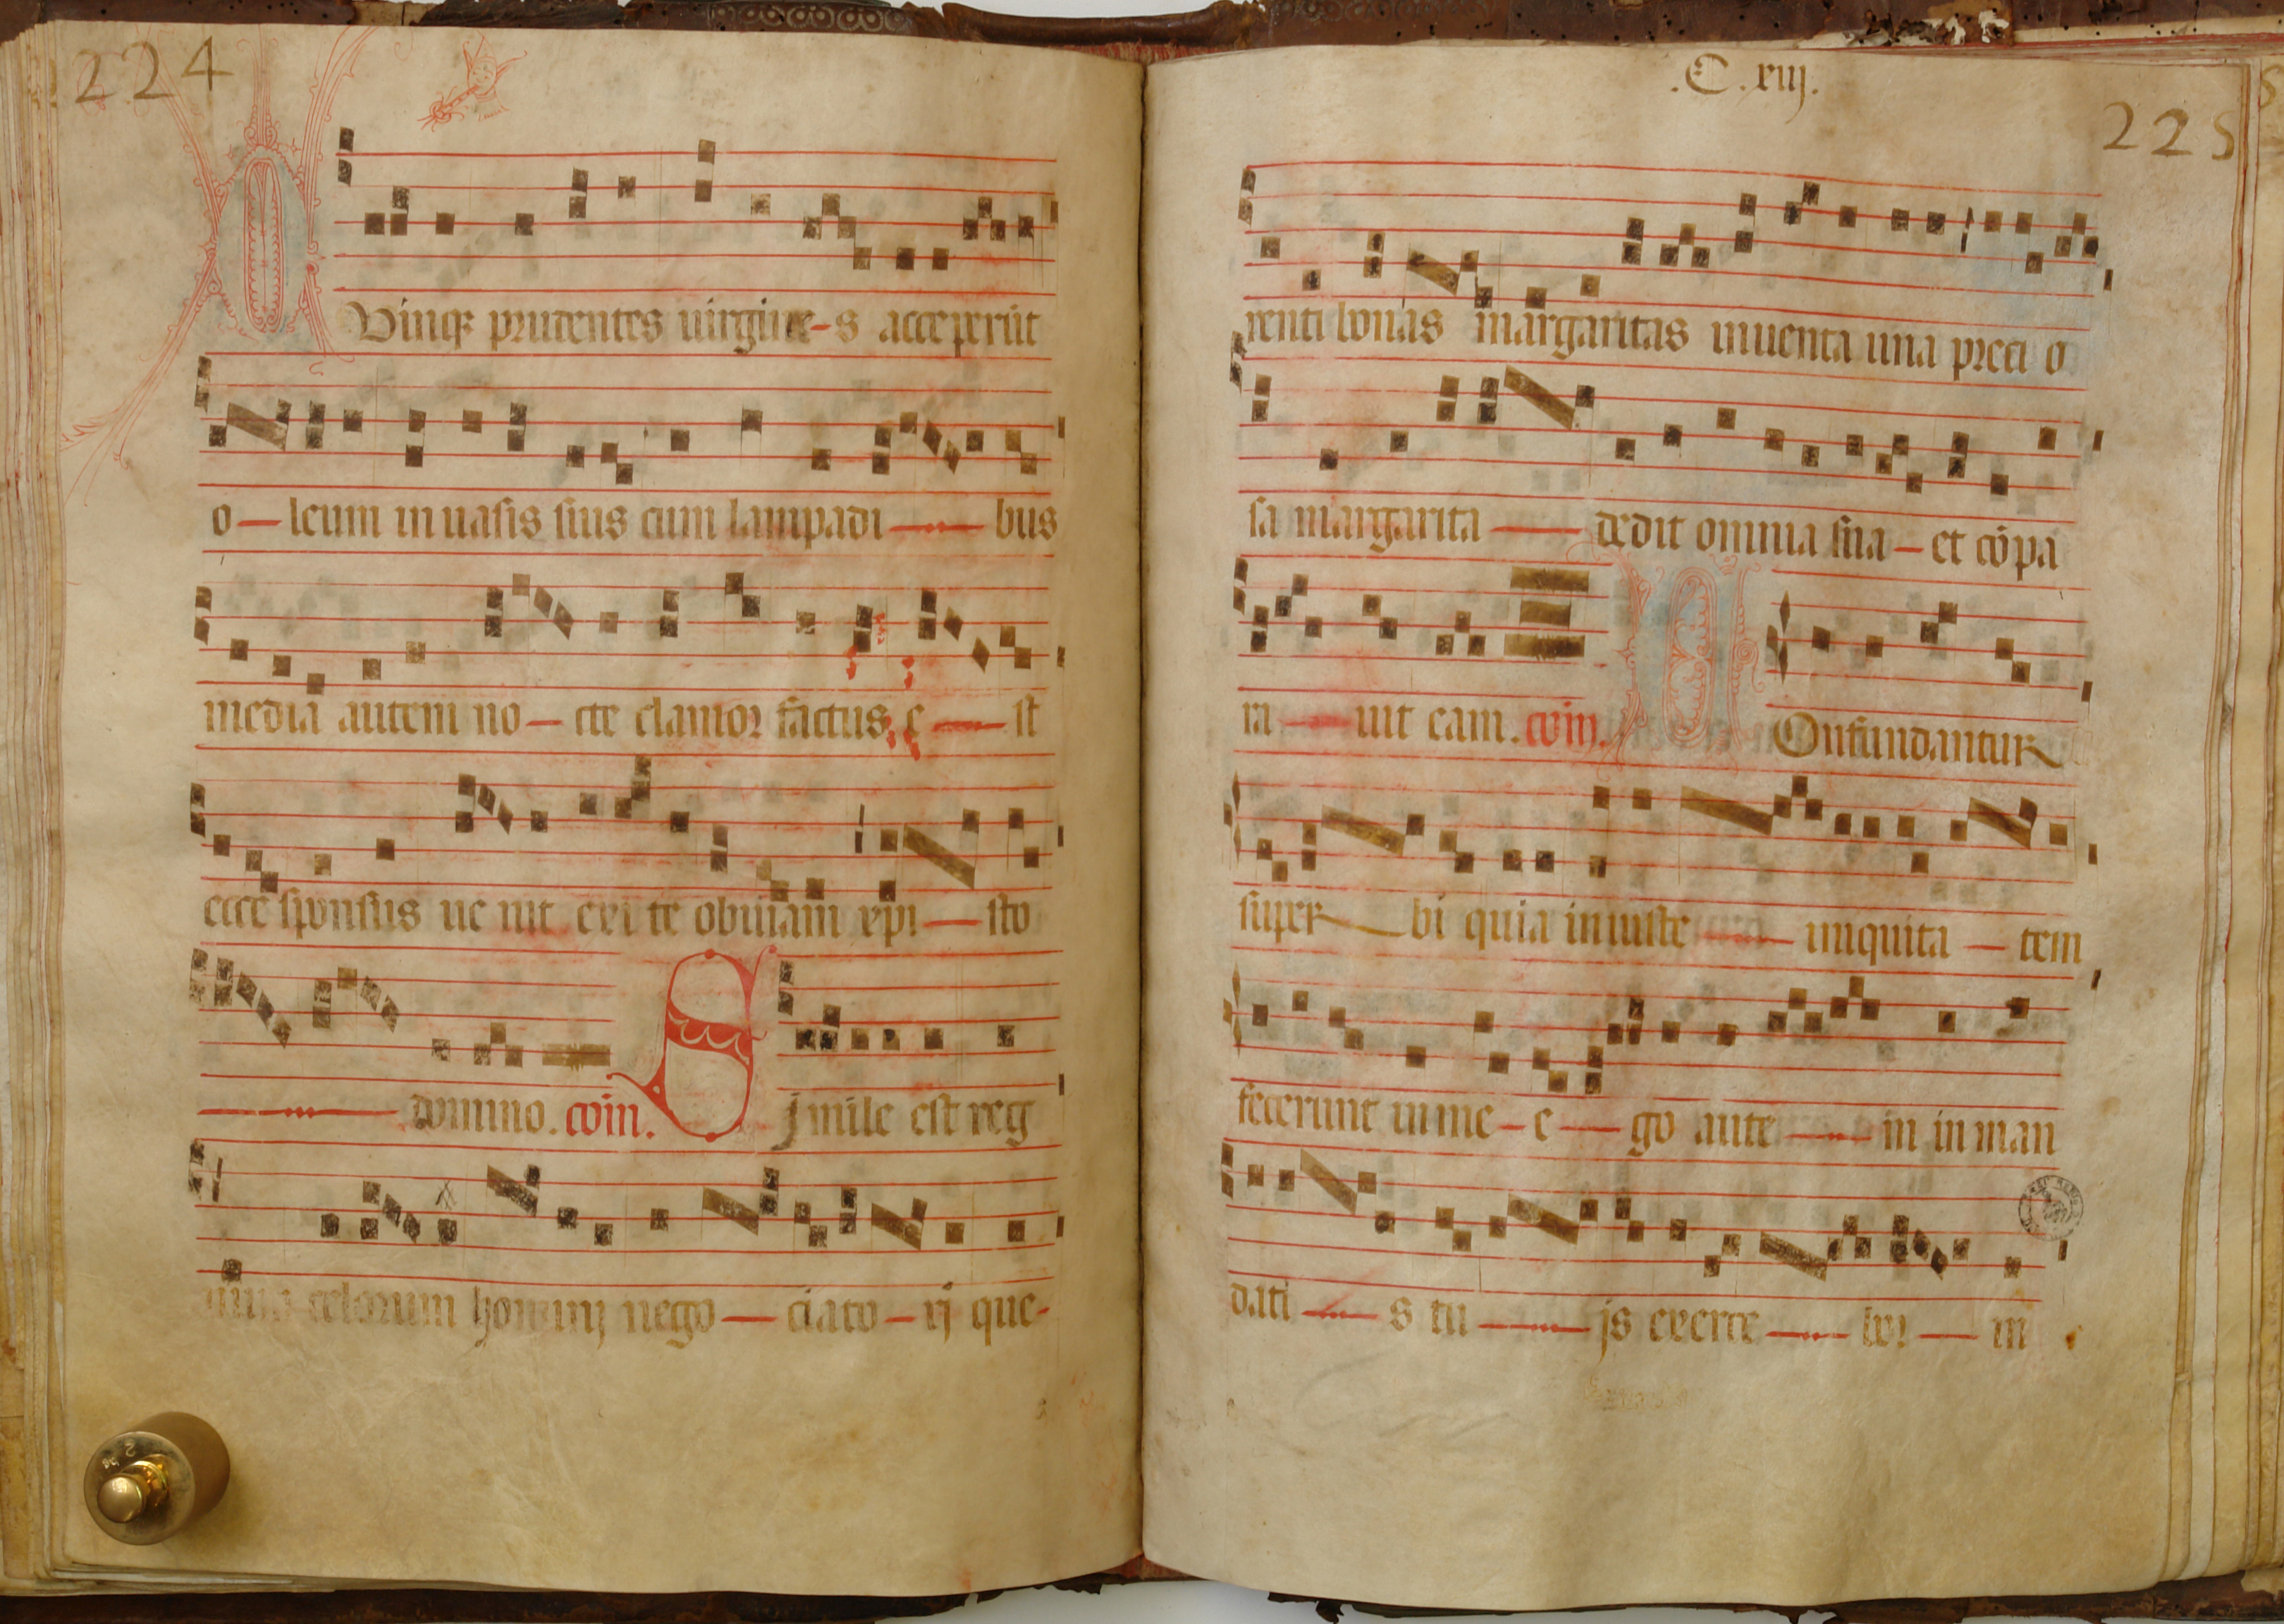 224
Vinqȝ prudentes uirgine-s acceperūt
o—leum in uasis suis cum lampadi—bus
media autem no—cte clamor factus e—st
ecce sponsus ue nit exi te obuiam xp̄i—sto
domino. coīn. S Jmile est reg
celorum homini nego—ciato—rj que-
.C. xiij.
225
renti bonas margaritas inuenta una preti o
sa margarita—dedit omnia sua—et cōpa
ra—uit eam. coīn. Onfundantur
super—bi quia iniuste—iniquita—tem
fecerunt in me—e—go aute—m in man
dati—s tu—js exerce—bo!—in